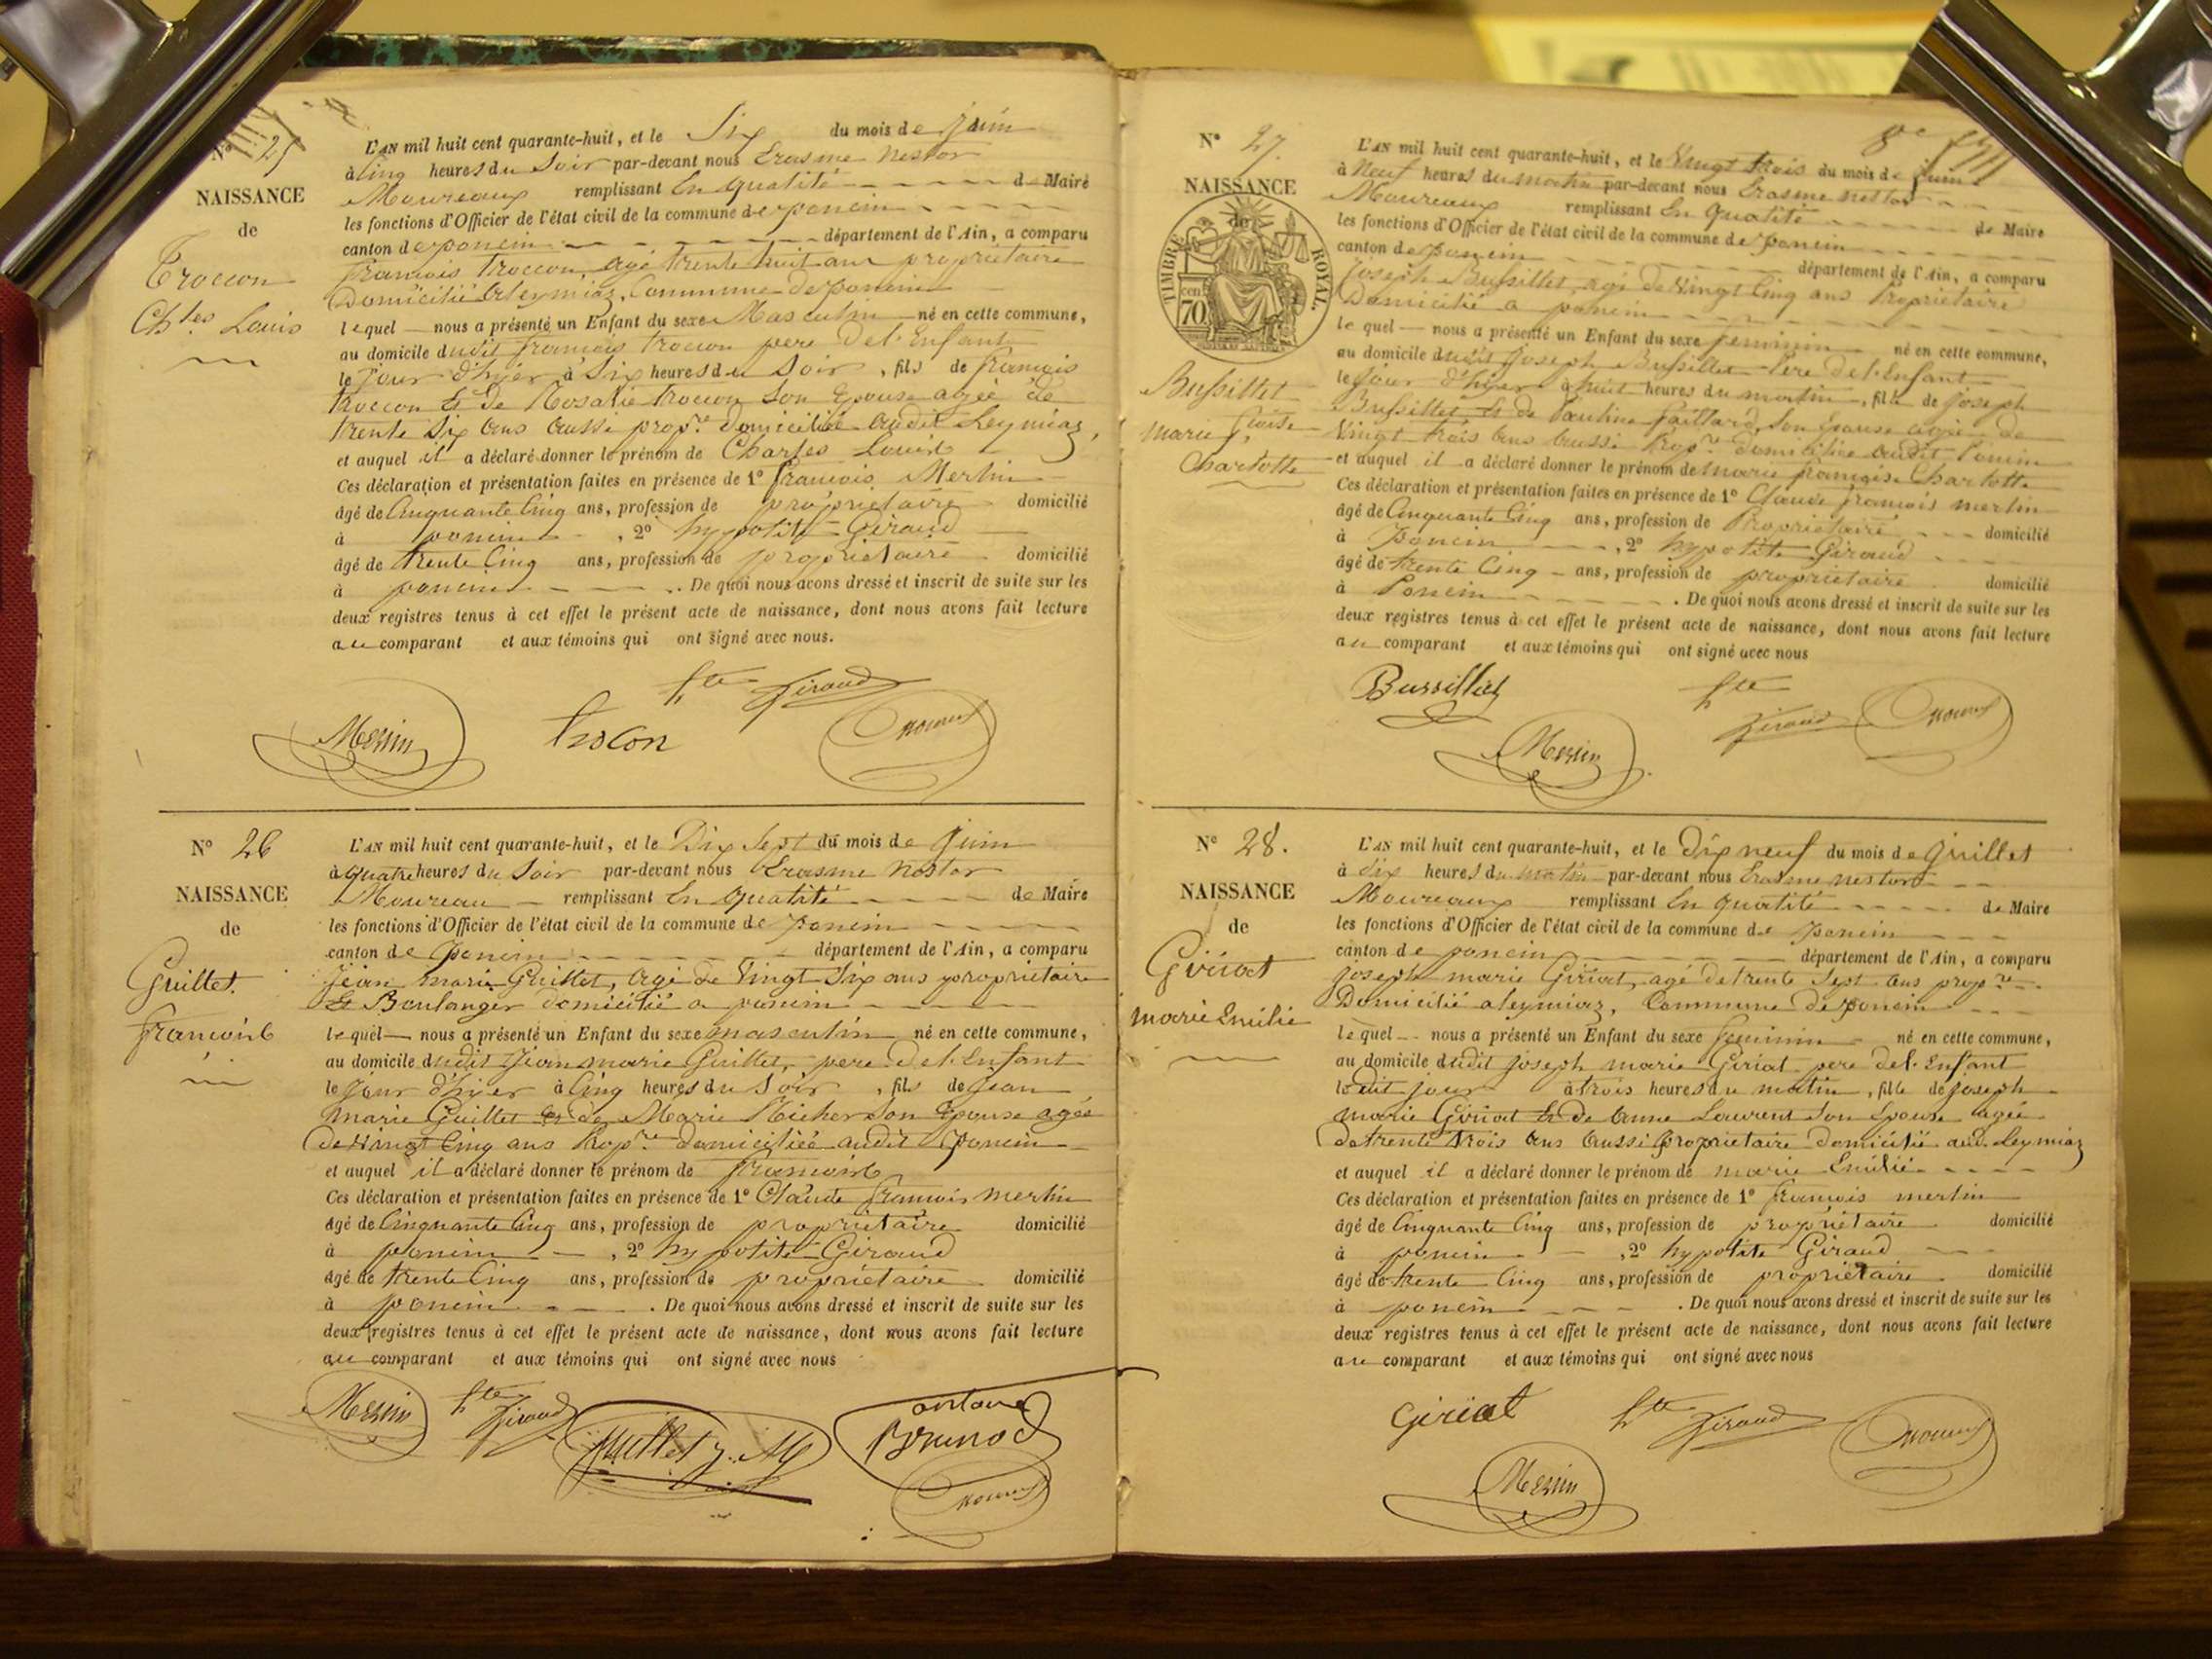 N° 25
NAISSANCE
de
Troccon
Ch.les Louis
L'AN mil huit cent quarante-huit, et le Six du mois de Juin
à Cinq heures du Soir par-devant nous Erasme Nestor
Moureaux remplissant En qualité de Maire
les fonctions d'Officier de l'état civil de la commune de poncin
canton de poncin département de l'Ain, a comparu
francois troccon, agé trente huit ans propriétaire
Domicilié à leymiaz, Commune de poncin
lequel nous a présenté un Enfant du sexe Masculin né en cette commune,
au domicile dudit francois troccon pere de l'Enfant
le jour d'hyer à Six heures du Soir, fils de francois
troccon Et de Rosalie troccon Son Epouse agée de
trente Six ans aussi prop.re domiciliée audit Leymiaz,
et auquel il a déclaré donner le prénom de Charles Louis
Ces déclaration et présentation faites en présence de 1° francois Merlin
âgé de Cinquante Cinq ans, profession de propriétaire domicilié
à poncin, 2° hypolite Giraud
âgé de trente Cinq ans, profession de propriétaire domicilié
à poncin. De quoi nous avons dressé et inscrit de suite sur les
deux registres tenus à cet effet le présent acte de naissance, dont nous avons fait lecture
au comparant et aux témoins qui ont signé avec nous.
hte Giraud
Merlin trocon
N° 26
NAISSANCE
de
Guillet.
francois
L'AN mil huit cent quarante-huit, et le Dix Sept du mois de Juin
à quatre heures du Soir par-devant nous Erasme Nestor
Moureau remplissant En qualité de Maire
les fonctions d'Officier de l'état civil de la commune de poncin
canton de poncin département de l'Ain, a comparu
Jean marie Guillet, agé de Vingt Six ans propriétaire
Et Boulanger domicilié a poncin
lequel nous a présenté un Enfant du sexe masculin né en cette commune,
au domicile dudit Jean marie Guillet, pere de l'Enfant
le jour d'hyer à Cinq heures du Soir, fils de Jean
Marie Guillet Et de Marie Son Epouse agée
de vingt Cinq ans Prop.re domiciliée audit poncin
et auquel il a déclaré donner le prénom de francois
Ces déclaration et présentation faites en présence de 1° Claude francois merlin
âgé de Cinquante Cinq ans, profession de propriétaire domicilié
à poncin, 2° hypolite Giraud
âgé de trente Cinq ans, profession de propriétaire domicilié
à poncin. De quoi nous avons dressé et inscrit de suite sur les
deux registres tenus à cet effet le présent acte de naissance, dont nous avons fait lecture
au comparant et aux témoins qui ont signé avec nous
Merlin hte Giraud Guillet J. M
N° 27.
NAISSANCE
de
TIMBRE ROYAL.
cen 70
Bussillet
marie
Charlotte
L'AN mil huit cent quarante-huit, et le Vingt trois du mois de Juin
à Neuf heures du matin par-devant nous Erasme nestor
Moureaux remplissant En qualité de Maire
les fonctions d'Officier de l'état civil de la commune de poncin
canton de poncin département de l'Ain, a comparu
Joseph Bussillet, agé de Vingt Cinq ans Propriétaire
Domicilié a poncin
lequel nous a présenté un Enfant du sexe feminin né en cette commune,
au domicile dudit Joseph Bussillet Pere de l'Enfant
le jour d'hyer à huit heures du matin, fille de Joseph
Bussillet, Et de Pauline Paillard, Son Epouse agée de
Vingt trois ans aussi Prop.re domiciliée audit Poncin
et auquel il a déclaré donner le prénom de Marie francoise Charlotte
Ces déclaration et présentation faites en présence de 1° Claude francois merlin
âgé de Cinquante Cinq ans, profession de Propriétaire domicilié
à Poncin, 2° hypolite Giraud
âgé de trente Cinq ans, profession de propriétaire domicilié
à Poncin. De quoi nous avons dressé et inscrit de suite sur les
deux registres tenus à cet effet le présent acte de naissance, dont nous avons fait lecture
au comparant et aux témoins qui ont signé avec nous
Bussillet hte Giraud
Merlin
N° 28.
NAISSANCE
de
Giriat
marie Emilie
L'AN mil huit cent quarante-huit, et le Dix neuf du mois de Juillet
à dix heures du matin par-devant nous Erasme nestor
Moureaux remplissant En qualité de Maire
les fonctions d'Officier de l'état civil de la commune de poncin
canton de poncin département de l'Ain, a comparu
Joseph marie Giriat, agé de trente Sept ans prop.re
Domicilié a leymiaz, Commune de poncin
lequel nous a présenté un Enfant du sexe feminin né en cette commune,
au domicile dudit Joseph marie Giriat pere de l'Enfant
le dit jour à trois heures du matin, fille de Joseph
marie Giriat Et de anne Laurent Son Epouse agée
de trente trois ans aussi Propriétaire domiciliée aud. Leymiaz
et auquel il a déclaré donner le prénom de marie Emilie
Ces déclaration et présentation faites en présence de 1° francois merlin
âgé de Cinquante Cinq ans, profession de propriétaire domicilié
à poncin, 2° hypolite Giraud
âgé de trente Cinq ans, profession de propriétaire domicilié
à poncin. De quoi nous avons dressé et inscrit de suite sur les
deux registres tenus à cet effet le présent acte de naissance, dont nous avons fait lecture
au comparant et aux témoins qui ont signé avec nous
Giriat hte Giraud
Merlin